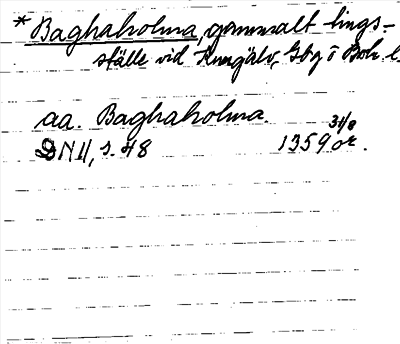 *Baghaholma, gammalt tings-
ställe vid Kungälv, Gbg o Boh. l.
aa. Baghaholma.
DN II, s. 48 1359 31/8 or.